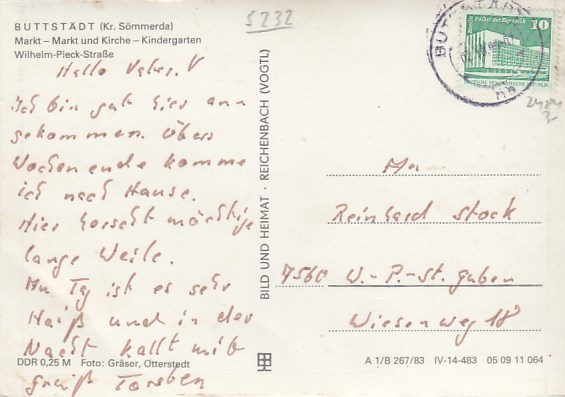 BUTTSTÄDT (Kr. Sömmerda)
Markt – Markt und Kirche – Kindergarten
Wilhelm-Pieck-Straße
5232
Hallo Vater. V
Ich bin gut hier ann
gekommen. Übers
Wochenende komme
ich nach Hause.
Hier herscht mächtige
lange Weile.
Am Tg ist es sehr
Haiß und in der
Nacht kallt mit
greiß Torsten
DDR 0,25 M Foto: Gräser, Otterstedt
BILD UND HEIMAT · REICHENBACH (VOGTL)
10
An
Reinhard Stock
7560 W.-P.-St. guben
Wiesenweg 18
A 1/B 267/83 IV-14-483 05 09 11 064